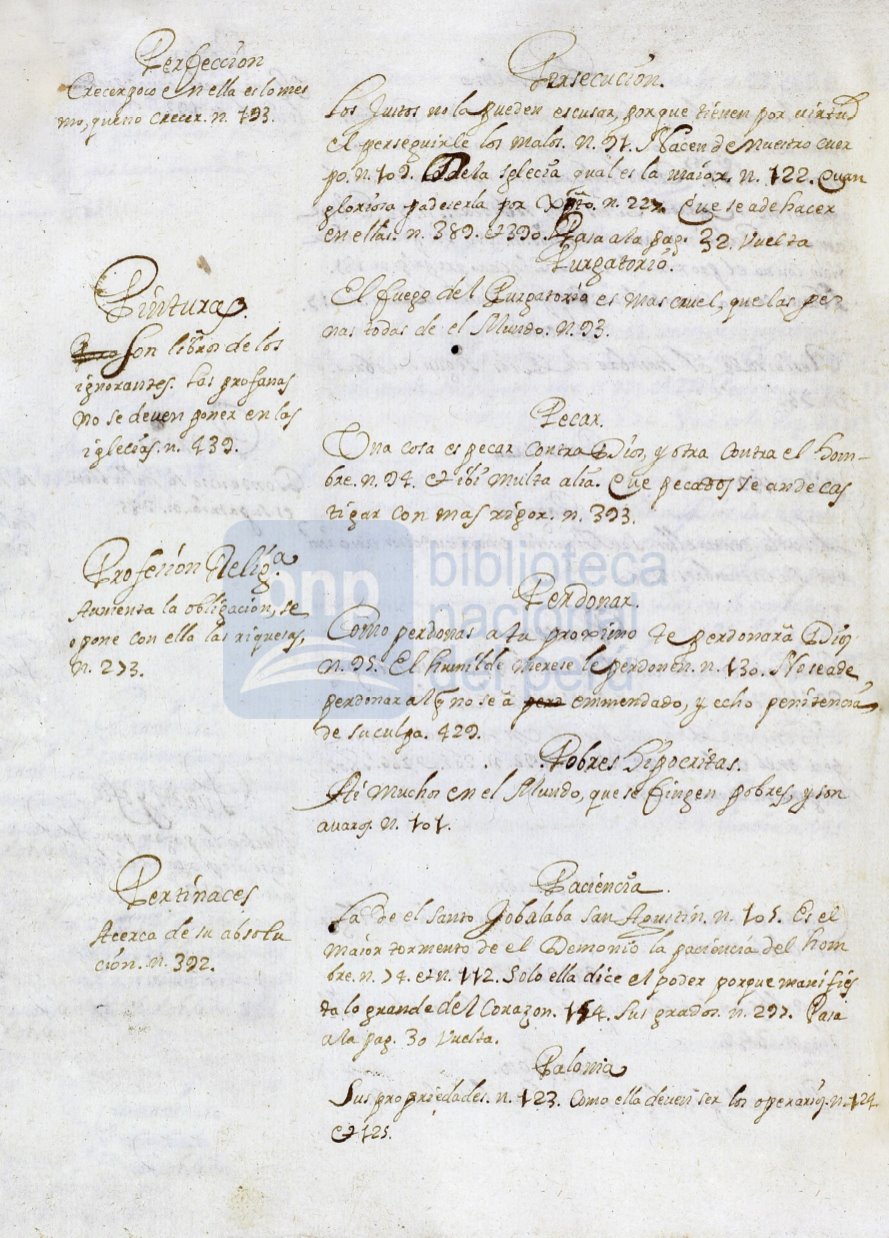 Perfeccion
Crecer poco en ella es lo mes
mo, que no crecer. n. 193.
Pinturas
Son libros de los
ignorantes. Las profanas
no se deven poner en las
iglecias. n. 439.
Profesion Relig.a
Aumenta la obligacion, se
opone con ella las riquesas,
n. 273.
Pertinaces
Acerca de su absolu
cion. n. 392.
Persecucion.
Los Justos no la pueden escusar, porque tienen por virtud
el perseguirle los malos. n. 91. Nacen de Nuestro cuer
po. n. 109. De la Iglecia qual es la maior. n. 122. Quan
gloriosa padeserla por Xpto. n. 227. Que se a de hacer
en ellas. n. 389. et 390. Pasa a la pag. 32. vuelta
Purgatorio.
El fuego del Purgatorio es mas cruel, que las pe
nas todas de el Mundo. n. 93.
Pecar.
Una cosa es pecar contra Dios, y otra contra el hom-
bre. n. 94. et ibi multa alia. Que pecados se an de cas
tigar con mas rigor. n. 393.
Perdonar.
Como perdonas a tu proximo te perdonarà Dios
n. 95. El humilde merese le perdonen. n. 130. No se a de
perdonar al q̃ no se à emmendado, y echo penitencia
de su culpa. 429.
Pobres hipocritas.
Ai muchos en el Mundo, que se fingen pobres, y son
avaros. n. 101.
Paciencia.
La de el Santo Job alaba San Agustin. n. 105. Es el
maior tormento de el Demonio la paciencia del hom
bre. n. 74. et n. 112. Solo ella dice el poder porque manifies
ta lo grande del Corazon. 154. Sus grados. n. 297. Pasa
a la pag. 30 vuelta.
Paloma
Sus propriedades. n. 123. Como ella deven ser los operarios. n. 124.
et 125.
bnp
biblioteca
nacional
del perú